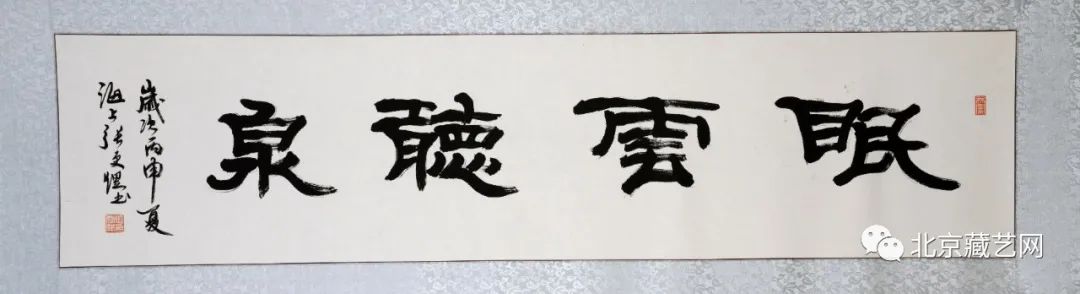 眠雲聽泉
歲次丙申夏
海上張更愷書
北京藏艺网